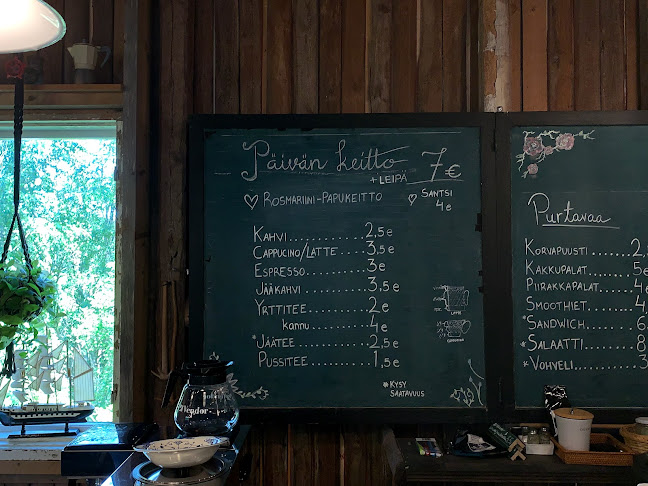 Päivän keitto 7€
+ LEIPÄ
♡ ROSMARIINI-PAPUKEITTO
♡ SANTSI
4e
KAHVI.............2,5e
CAPPUCINO/LATTE....3,5e
ESPRESSO..........3e
JÄÄKAHVI..........3,5e
YRTTITEE..........2e
kannu........4e
*JÄÄTEE...........2,5e
PUSSITEE..........1,5e
*KYSY
SAATAVUUS
Purtavaa
KORVAPUUSTI........2,
KAKKUPALAT.......5e
PIIRAKKAPALAT....4
SMOOTHIET........4,
*SANDWICH........6
*SALAATTI........8
*VOHVELI.........3